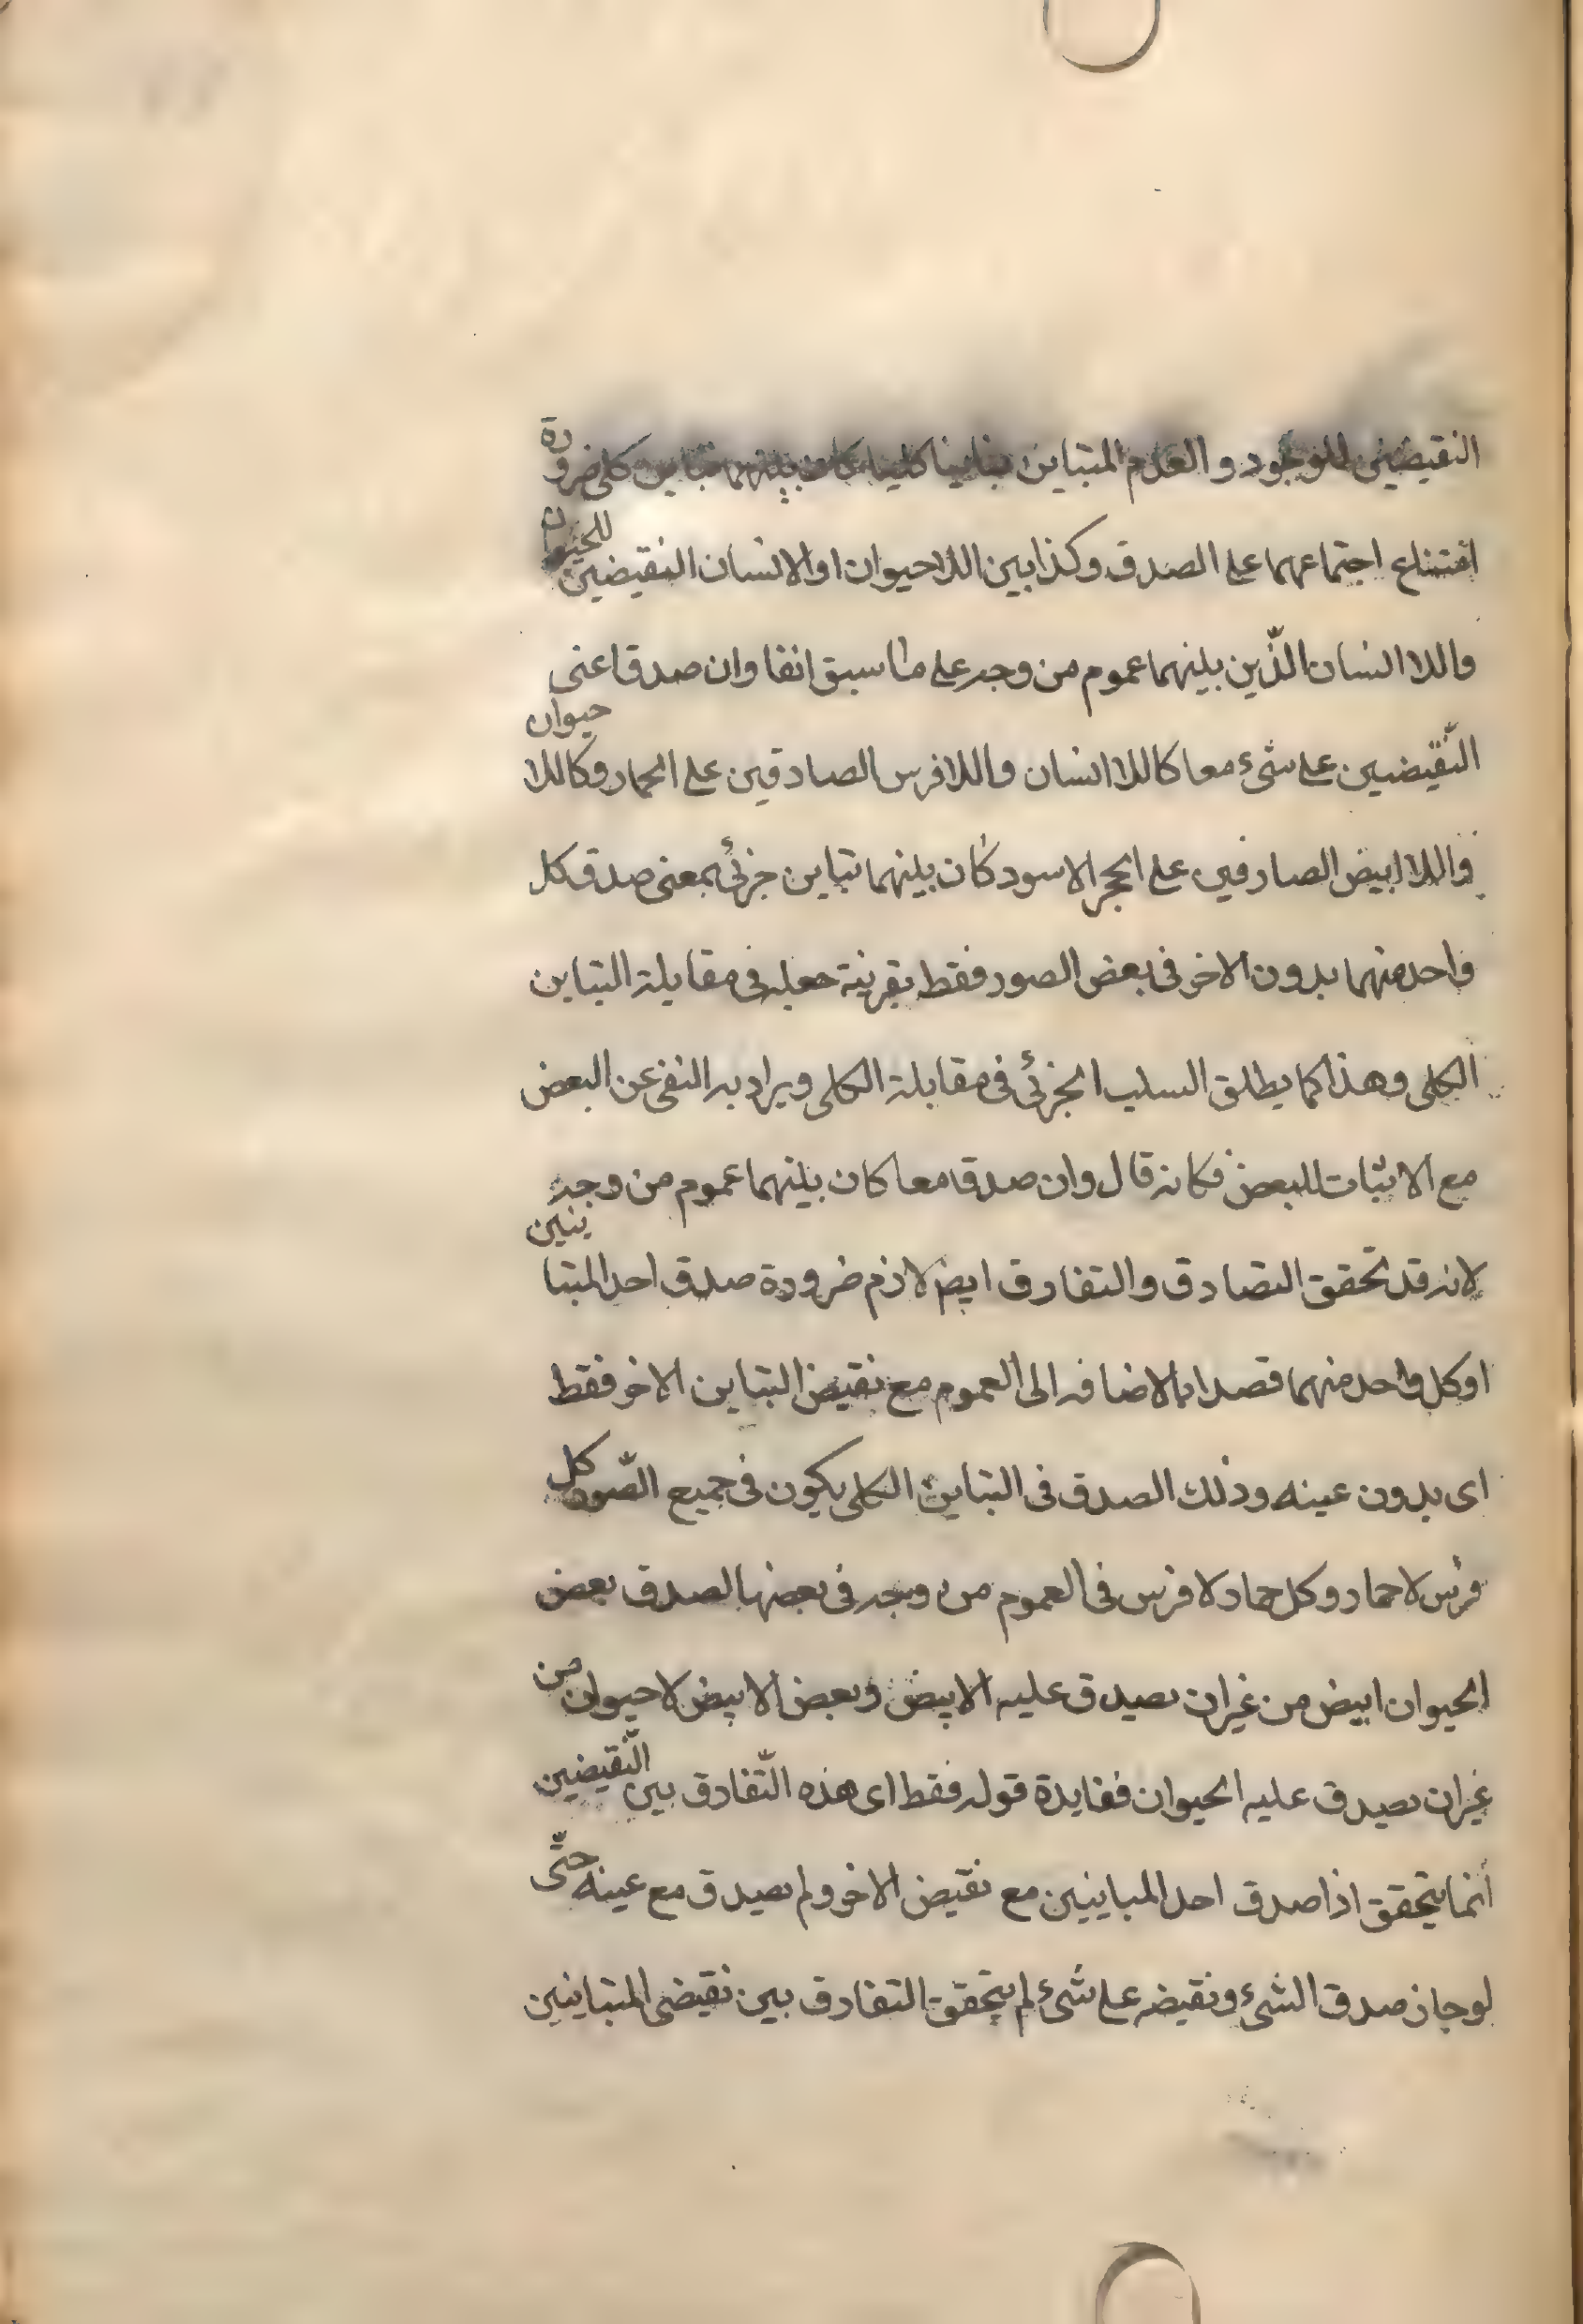 النقيضين للوجود و العدم المتباين تباينا كليا كان بينهما تباين كلى ضرورة
امتناع اجتماعهما على الصدق وكذا بين اللاحيوان او الانسان النقيضين للحيوان
واللا انسان الذّين بينهما عموم من وجه على ما سبق انفا وان صدقا اعنى
النّقيضين على شىء معا كاللا انسان واللا فرس الصادقين على الحمار وكاللا حيوان
واللا ابيض الصادقين على الحجر الاسود كان بينهما تباين جزئى بمعنى صدق كل
واحد منهما بدون الاخر فى بعض الصور فقط بقرينة جعله فى مقابلة التباين
الكلى وهذا كما يطلق السلب الجزئى فى مقابلة الكلى ويراد به النفى عن البعض
مع الاثبات للبعض فكانه قال وان صدقا معا كان بينهما عموم من وجه
لانه قد تحقق التصادق والتفارق ايض لازم ضرورة صدق احد المتبا ينين
او كل واحد منهما قصدا بالاضافه الى العموم مع نقيض التباين الاخر فقط
اى بدون عينه وذلك الصدق فى التباين الكلى يكون فى جميع الصّور كل
فرس لا حمار وكل حمار لا فرس فى العموم من وجه فى بعضها لصدق بعض
الحيوان ابيض من غير ان يصدق عليه الابيض وبعض الابيض لا حيوان من
غير ان يصدق عليه الحيوان ففايدة قوله فقط اى هذه التّفارق بين النّقيضين
انما يتحقق اذا صدق احد المباينين مع نقيض الاخر ولم يصدق مع عينه حتّى
لو جاز صدق الشىء ونقيضه على شىء لم يتحقق التفارق بين نقيضى المتباينين